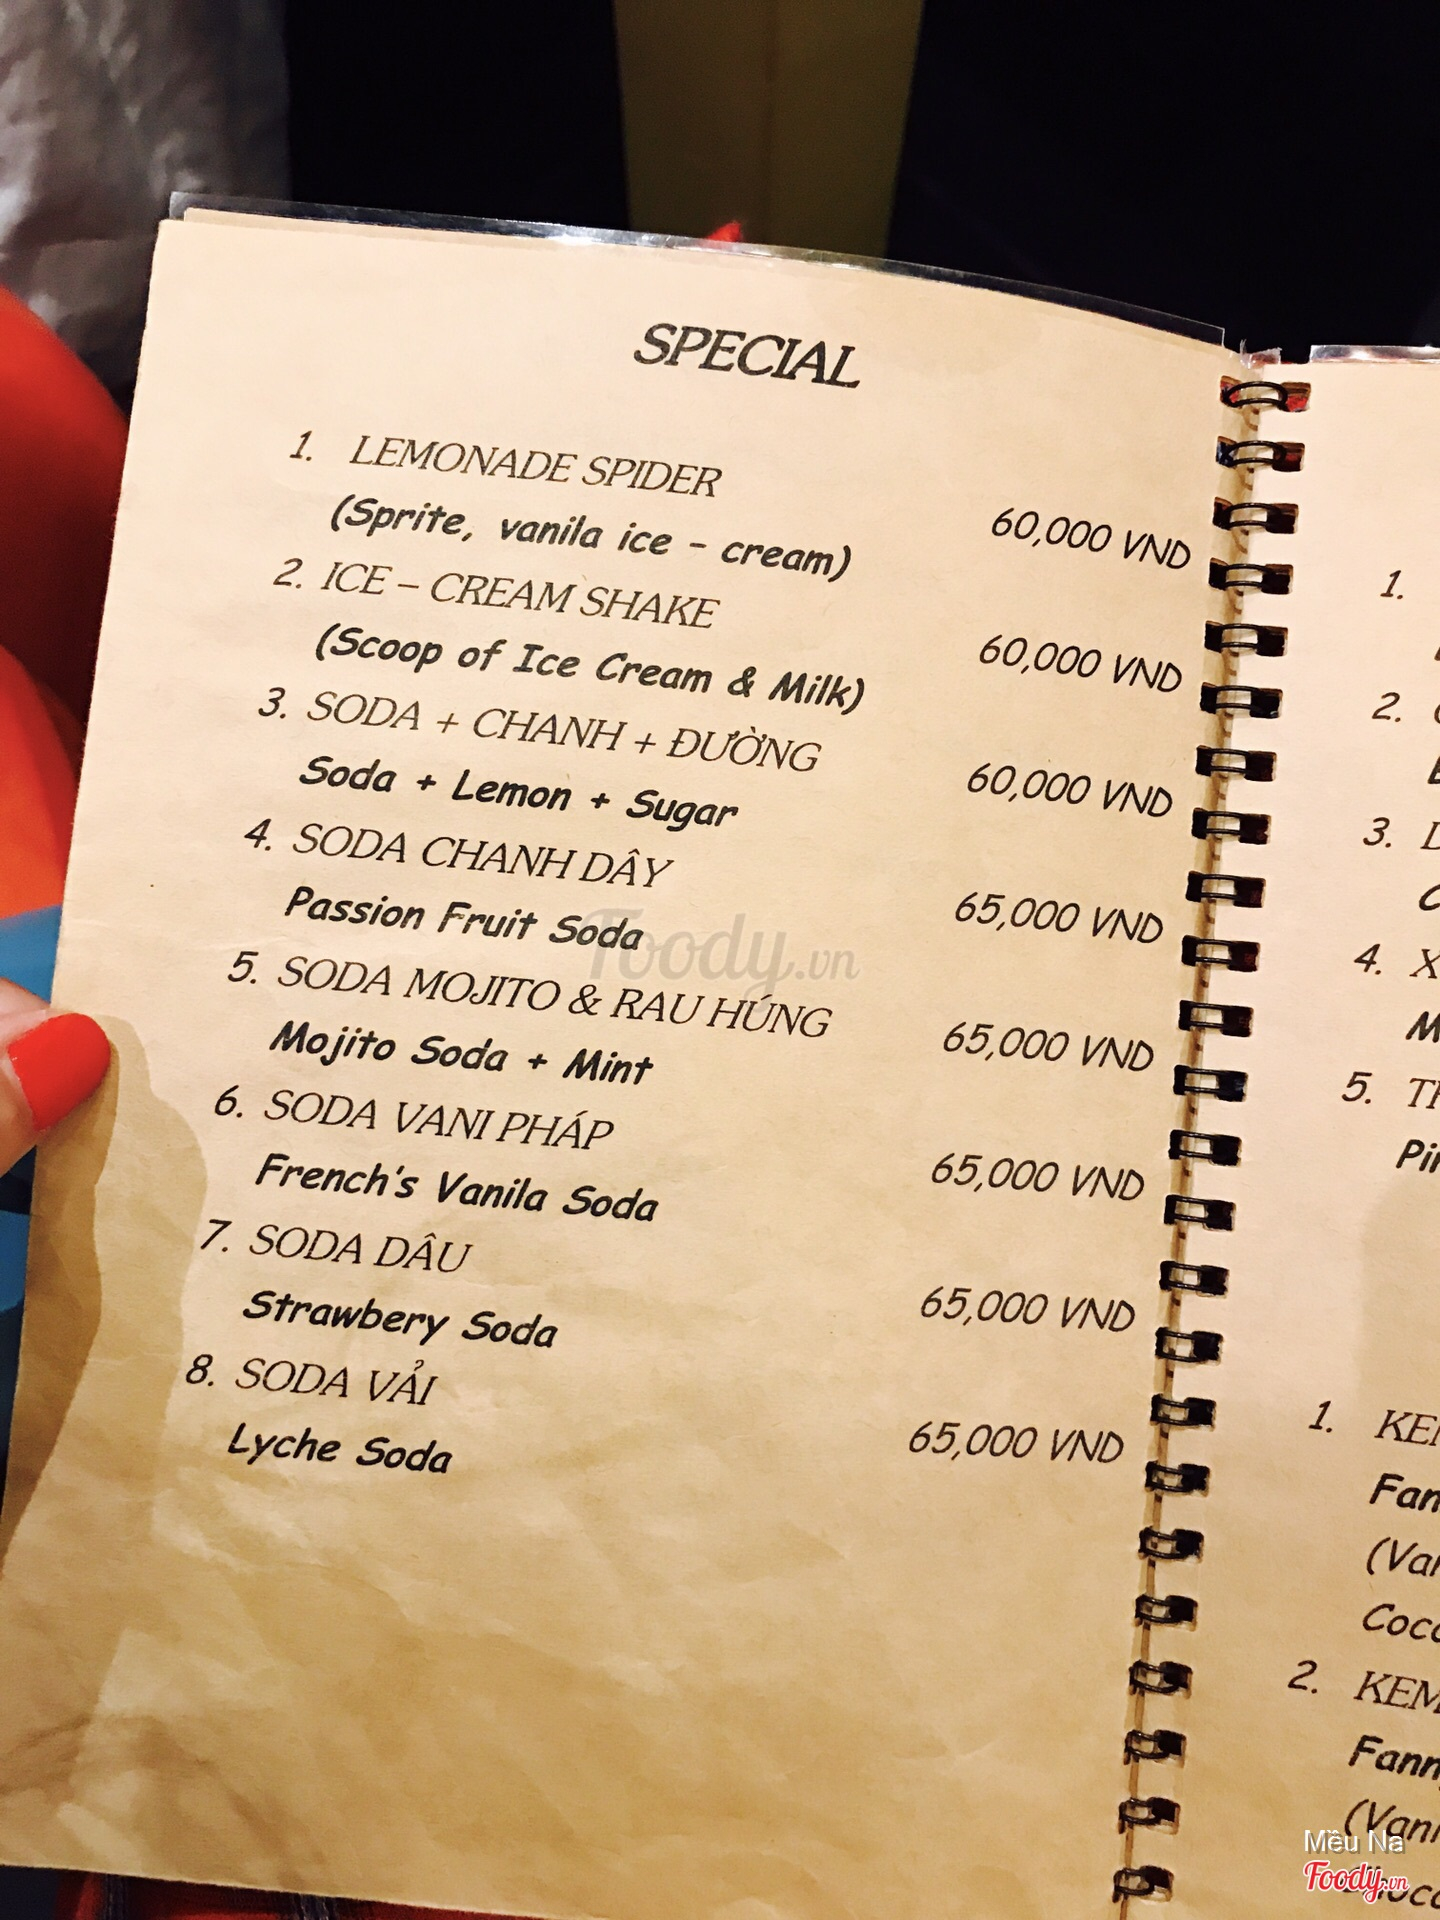 SPECIAL
1. LEMONADE SPIDER
(Sprite, vanila ice - cream)
60,000 VND
2. ICE – CREAM SHAKE
(Scoop of Ice Cream & Milk)
60,000 VND
3. SODA + CHANH + ĐƯỜNG
Soda + Lemon + Sugar
60,000 VND
4. SODA CHANH DÂY
Passion Fruit Soda
65,000 VND
5. SODA MOJITO & RAU HÚNG
Mojito Soda + Mint
65,000 VND
6. SODA VANI PHÁP
French's Vanila Soda
65,000 VND
7. SODA DÂU
Strawbery Soda
65,000 VND
8. SODA VẢI
Lyche Soda
65,000 VND
Foody.vn
1.
2.
3.
4.
5.
1.
2.
Mều Na
Foody.vn